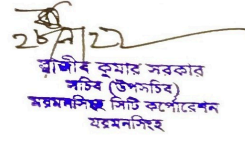 ২৮/৭/২২
রাজীব কুমার সরকার
সচিব (উপসচিব)
ময়মনসিংহ সিটি কর্পোরেশন
ময়মনসিংহ